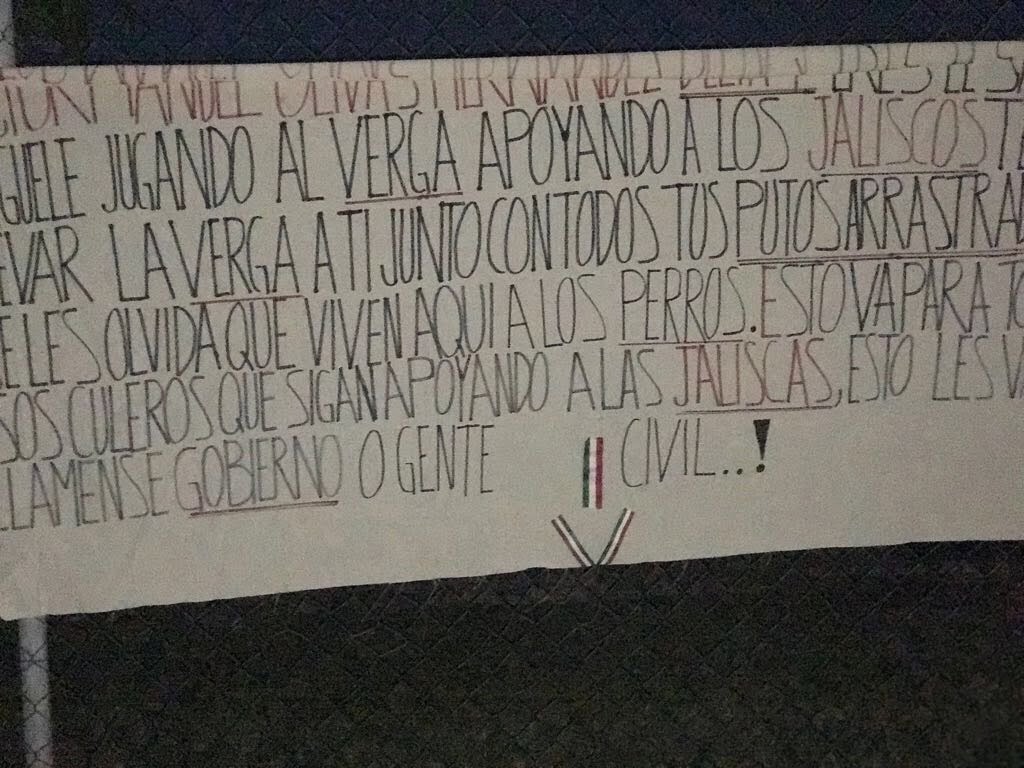 OLIVAS HERNANDEZ ERES EL
JUGANDO AL VERGA APOYANDO A LOS JALISCOS
LA VERGA A TI JUNTO CON TODOS TUS PUTOS ARRASTRA
LES OLVIDA QUE VIVEN AQUI A LOS PERROS. ESTO VA PARA
SOS CULEROS QUE SIGAN APOYANDO A LAS JALISCAS, ESTO LES
LLAMENSE GOBIERNO O GENTE CIVIL...!